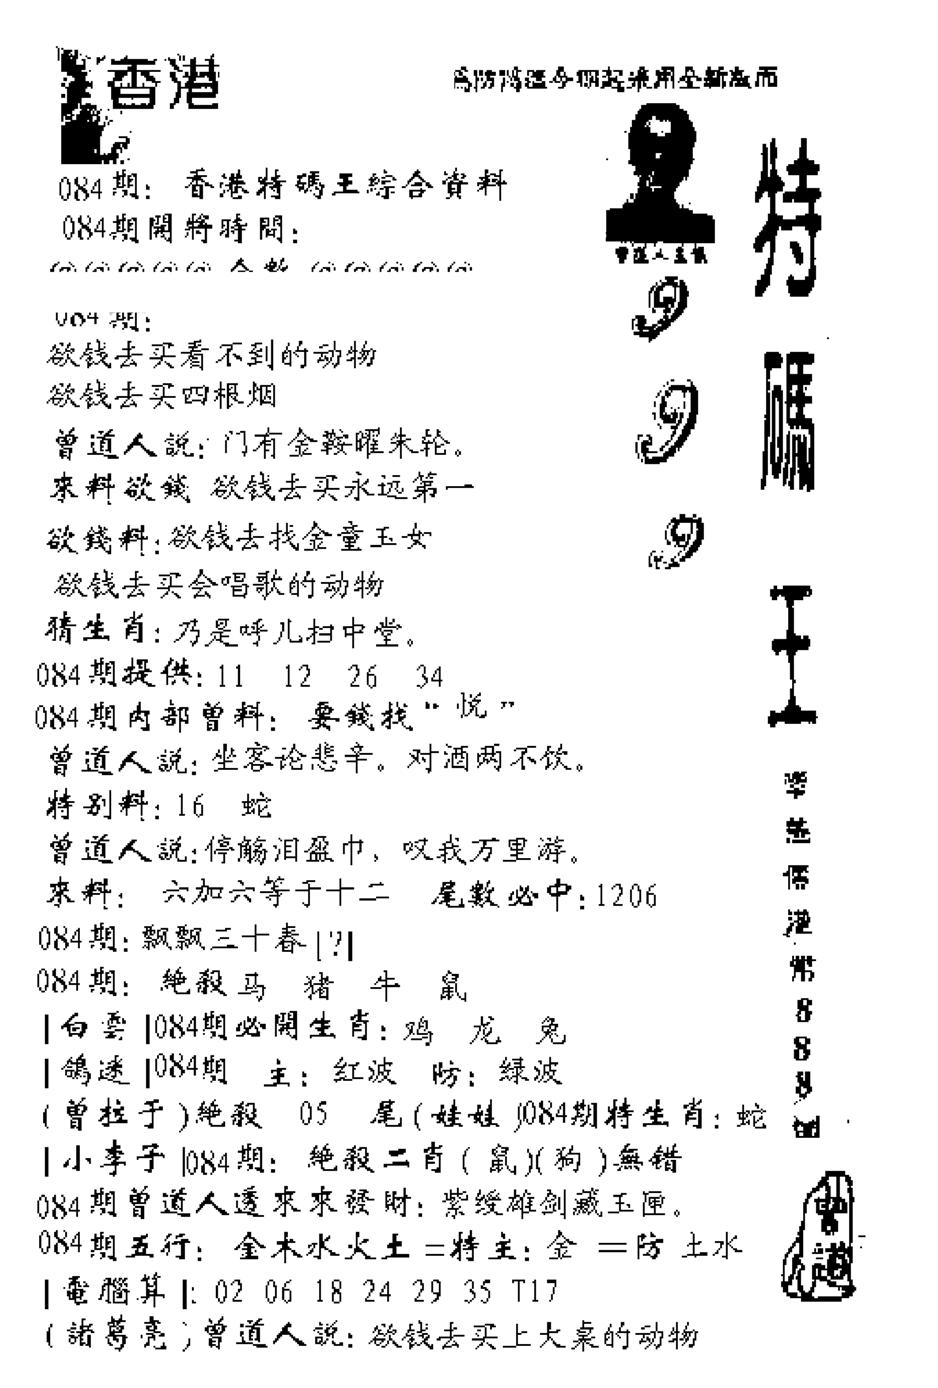 香港
為防濫今期起采用全新版面
084期： 香港特碼王綜合資料
084期開將時間：
曾道人主
084期：
欲钱去买看不到的动物
欲钱去买四根烟
曾道人説：门有金鞍曜朱轮。
來料欲錢 欲钱去买永远第一
欲錢料：欲钱去找金童玉女
欲钱去买会唱歌的动物
猜生肖：乃是呼儿扫中堂。
084期提供：11 12 26 34
084期内部曾料： 要錢找“悦”
曾道人説：坐客论悲辛。对酒两不饮。
特别料：16 蛇
曾道人説：停觞泪盈巾，叹我万里游。
來料： 六加六等于十二 尾數必中：1206
084期：飘飘三十春|?|
084期： 絶殺马 猪 牛 鼠
|白雲|084期必開生肖：鸡 龙 兔
|鴿迷|084期 主：红波 防：绿波
(曾拉于)絶殺 05 尾(娃娃)084期特生肖：蛇
|小李子|084期： 絶殺二肖(鼠)(狗)無错
084期曾道人透來來發財：紫绶雄剑藏玉匣。
084期五行： 金木水火土=特主：金 =防 土水
|電腦算|：02 06 18 24 29 35 T17
(諸葛亮)曾道人説：欲钱去买上大桌的动物
999
特碼王
港幣888
曾道